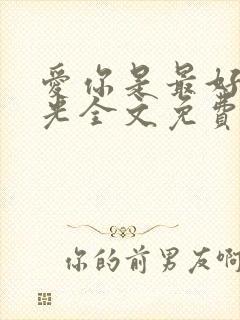 爱你是最好
光全文免費
你的前男友啊